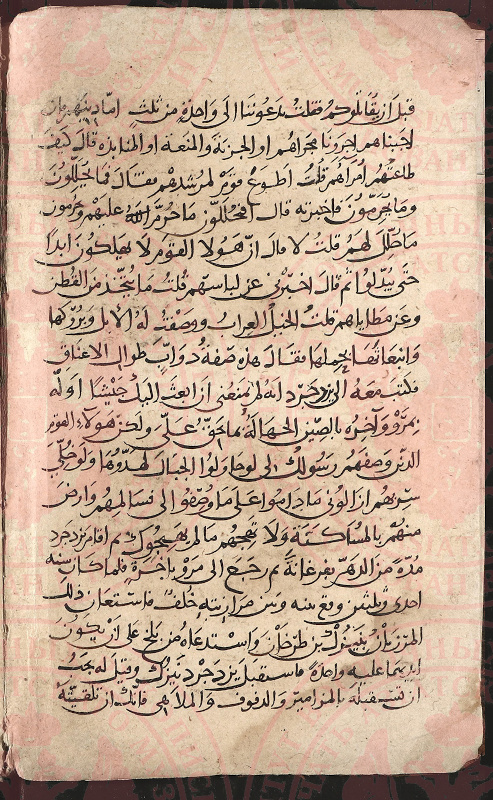 قبل ان يقاتلوكم قلت يدعوننا الى واحدة من ثلث اما دينهم فان
اجبناهم اجرونا مجراهم او الجزية والمنعة او المنابذة قال كيف
طاعتهم امراهم قلت اطوع قوم لمرشدهم فقال فما يحللون
وما يحرمون فاخبرته قال افيحللون ما حرم الله عليهم ويحرمون
ما حلل لهم قلت لا قال ان هولا القوم لا يهلكون ابدا
حتى يبدلوا ثم قال اخبرني عن لباسهم قلت ما يتخذ من القطن
وعن مطاياهم قلت الخيل العراب ووصفت له الابل وبروكها
وانبعاثها بحملها فقال هذه صفة دواب طوال الاعناق
فكتب معه الى يزدجرد انه لم يمنعني ان ابعث اليك جيشا اوله
بمرو وآخره بالصين الجهالة بما يحق على ولكن هولاء القوم
الذين وصفهم رسولك لي لو حاولوا الجبال لهدوها ولو خلي
سربهم ازالوني ما داموا على ما وصفوا لي فسالمهم وارض
منهم بالمساكنة ولا تهجهم ما لم يهيجوك ثم اقام يزدجرد
مدة من الدهر بفرغانة ثم رجع الى مرو باخرة فلما كان سنه
احدى وثلثين وقع بينه وبين مرازبته خلف فاستعان ذلك
المرزبان بنيزك بن طرخان واستدعاه من بلخ على ان يكون
ايديهما عليه واحدة فاستقبل يزدجرد نيزك وقيل له يجب
ان تستقبله بالمزامير والدفوف والملاهي فانك ان تلقيته